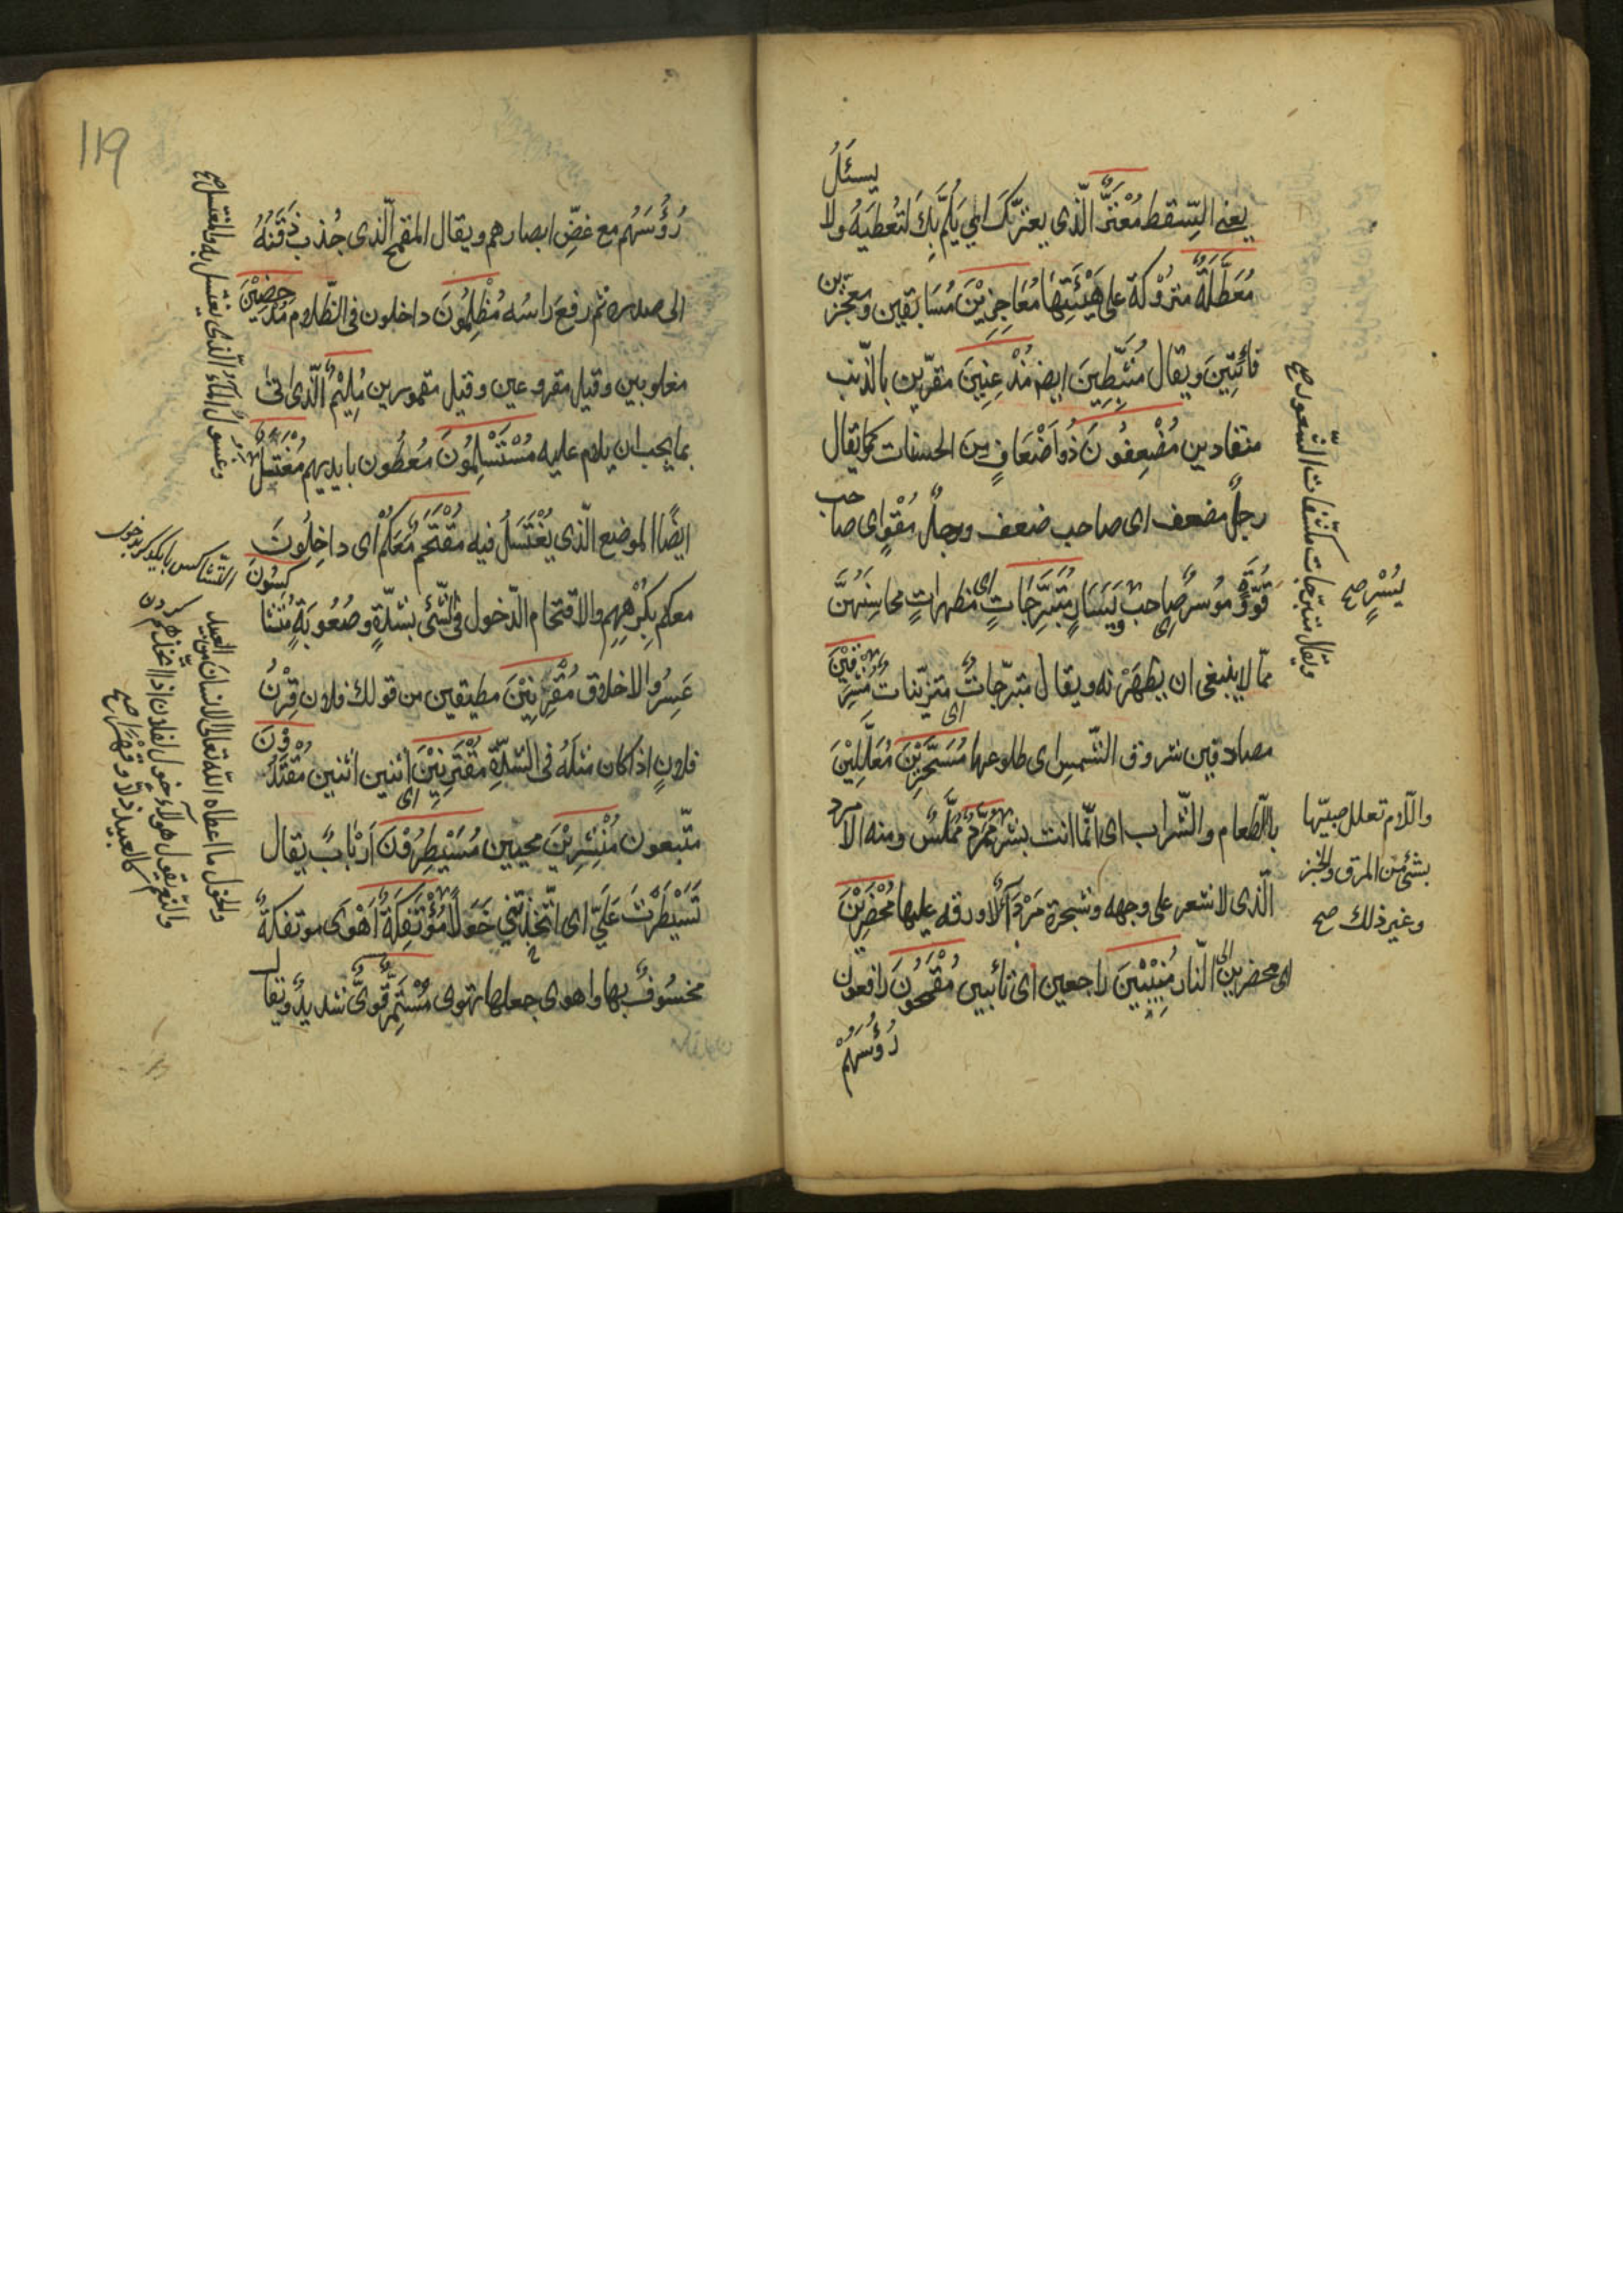 يسئل
يعنى السّقط مُعْتَرٌّ الّذى يعترّك اى يَلُمُّ بِكَ لتُعطيَهُ ولا
مُعَطَّلَةٌ متروُكة على هَيْئَتِهٰا مُعَاجِزِيْنَ مُسَابقين ومعجّزين
فائِتِينَ ويقال مُثَبِّطِينَ ايضا مُذْعِنِينَ مقرّين بالذّنب
منقادين مُضْعِفُونَ ذُو اَضْعَافٍ مِنَ الحسنات كما يقال
رجلٌ مضعف اى صاحب ضعف ورجلٌ مُقْوٍ اى صاحب
قُوَّةٍ ومُوسرٌ صاحب يَسَارٍ مُتَبَرِّجَاتٍ اى مظهراتٍ محاسِنَهُنَّ
يُسْرٍ صح
ممّا لا ينبغى ان يظهَرْنه ويقال متبرّجاتٌ متزيّنات مُشْرِقِيْنَ
مصادفين شروق الشّمس اى طلوعها مُسَحَّرِيْنَ مُعَلَّلِيْنَ
بالطّعام والشّراب اى انّما انت بشر مُمَرَّدٌ مُمَلَّسٌ ومنه الامرد
الّذى لا شعر على وجهه وشجرة مَرْدَآءُ لا ورقه عليها مُحْضَرِيْنَ
اى محضرين الى النار مُنِيْبِيْنَ راجعين اى تائبين مُقْمَحُونَ رافعون
رُؤُسَهُمْ
ويقال متبرّجات مكشّفات الشّعور صح
والامّ تعلل صبيّها
بشئ من المرق والخبز
وغير ذلك صح
119
رُؤُسَهُم مع غضِّ ابصارهم ويقال المقمح الّذى جُذب ذَقَنَهُ
الى صدره ثم رفعَ راسَه مُظْلِمُونَ داخلون فى الظّلام مُدْحضِيْنَ
مغلوبين وقيل مقروعين وقيل مقمورين مُلِيْمٌ الّذى اتىٰ
بما يجب ان يلام عليه مُسْتَسْلِمُونَ مُعطُون بايديهم مُغْتَسَلٌ
ايضًا الموضع الّذى يُغْتَسَلُ فيه مُقْتَحِمٌ مَّعَكُمْ اى داخِلُونَ
معكم بِكُرْهِهِم والاقتحام الدّخول فى الشّئ بشدّةٍ وصُعُوبَةٍ مُتَشَاكِسُونَ
عَسِرُوا الاخلاق مُقْرِنِيْنَ مطيقين من قولك فلان قِرْنُ
فلانٍ اذا كان مثلَهُ فى الشّدّةِ مُقْتَرِنِيْنَ اى اثنين اثنين مُقْتَدُوْنَ
متّبعون مُنْشَرِيْنَ محيين مُسَيْطِرُوْنَ اَرْبَابٌ يقال
تَسَيْطَرْتَ عَلَيَّ اى اتّخذتّني خَوَلًا مُؤْتَفِكَةٌ اَهْوَى موتفكةٌ
مخسُوفٌ بها واهوى جعلها تهوى مُسْتَمِرٌّ قَوِىٌّ شديدٌ ويقال
وغسول المآءُ الّذى يغتسل به والمغتسل صح
والخول ما اعطاه اللّه تعالى الانسان من العبيد
والنّعم يقول هولآء خول لفلان اذا اتّخذهم
كالعبيد ذلّا وقهرا صح